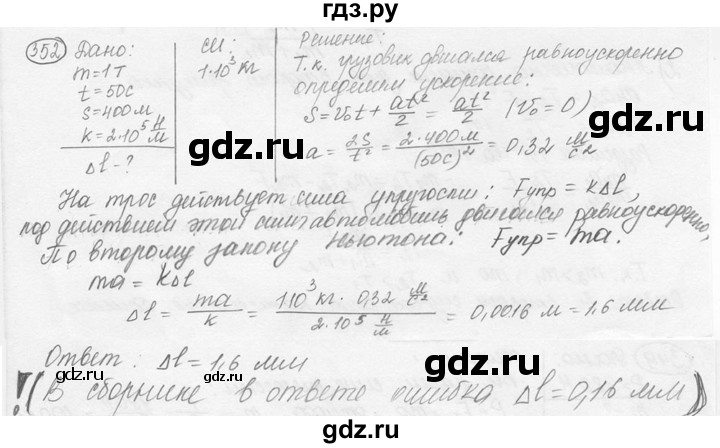 гдз.ру
352 Дано:
m=1т
t=50с
S=400м
k=2·10⁵ Н/м
Δl-?
СИ:
1·10³ кг
Решение:
Т.к. грузовик двигался равноускоренно
определим ускорение:
S=V₀t + at²/2 = at²/2 (V₀=0)
a = 2S/t² = 2·400м/(50с)² = 0,32 м/с²
На трос действует сила упругости: Fупр = kΔl,
под действием этой силы автомобиль двигался равноускоренно,
По второму закону Ньютона: Fупр = ma.
ma = kΔl
Δl = ma/k = 1·10³ кг · 0,32 м/с² / 2·10⁵ Н/м = 0,0016 м = 1,6 мм
Ответ: Δl = 1,6 мм
! (В сборнике в ответе ошибка Δl = 0,16 мм)
gdz.ru gdz.ru
gdz.ru gdz.ru
gdz.ru gdz.ru
gdz.ru gdz.ru